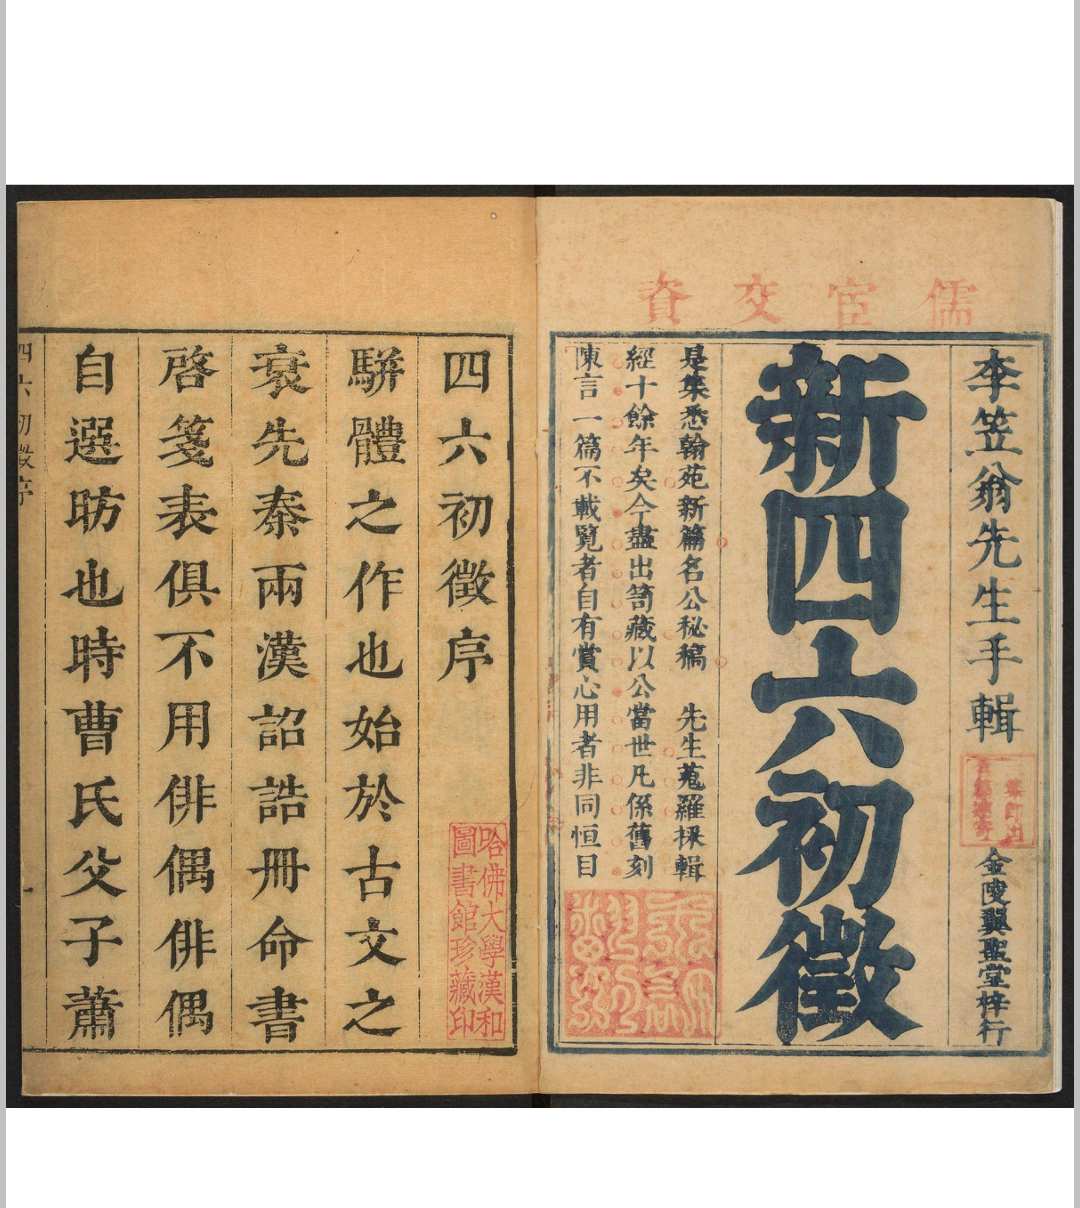 儒宦交資
李笠翁先生手輯
金陵翼聖堂梓行
新四六初徵
是集悉翰苑新篇名公秘稿　先生蒐羅採輯
經十餘年矣今盡出笥藏以公當世凡係舊刻
陳言一篇不載覧者自有賞心用者非同恒目
四六初徵序
哈佛大學漢和
圖書館珍藏印
駢體之作也始於古文之
衰先秦兩漢詔誥冊命書
啓箋表俱不用俳偶俳偶
自選昉也時曹氏父子蕭
四六初徵序
一